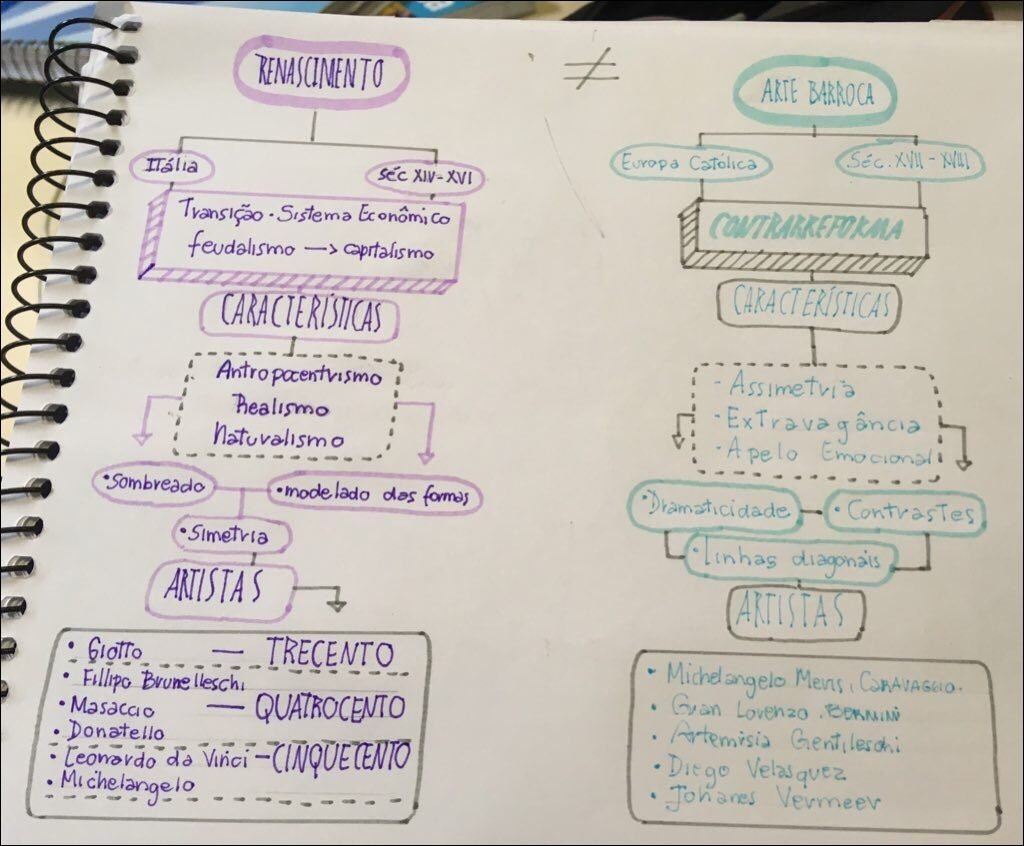 RENASCIMENTO
Itália
Séc XIV-XVI
Transição • Sistema Econômico
feudalismo → capitalismo
CARACTERÍSTICAS
Antropocentrismo
Realismo
Naturalismo
• Sombreado
• modelado das formas
• Simetria
ARTISTAS
• Giotto — TRECENTO
• Fillipo Brunelleschi
• Masaccio — QUATROCENTO
• Donatello
• Leonardo da Vinci — CINQUECENTO
• Michelangelo
≠
ARTE BARROCA
Europa Católica
Séc. XVII - XVIII
CONTRARREFORMA
CARACTERÍSTICAS
- Assimetria
- Extravagância
- Apelo Emocional
• Dramaticidade
• Contrastes
• Linhas diagonais
ARTISTAS
• Michelangelo Meris, CARAVAGGIO.
• Gian Lorenzo BERNINI
• Artemisia Gentileschi
• Diego Velasquez
• Johanes Vermeer